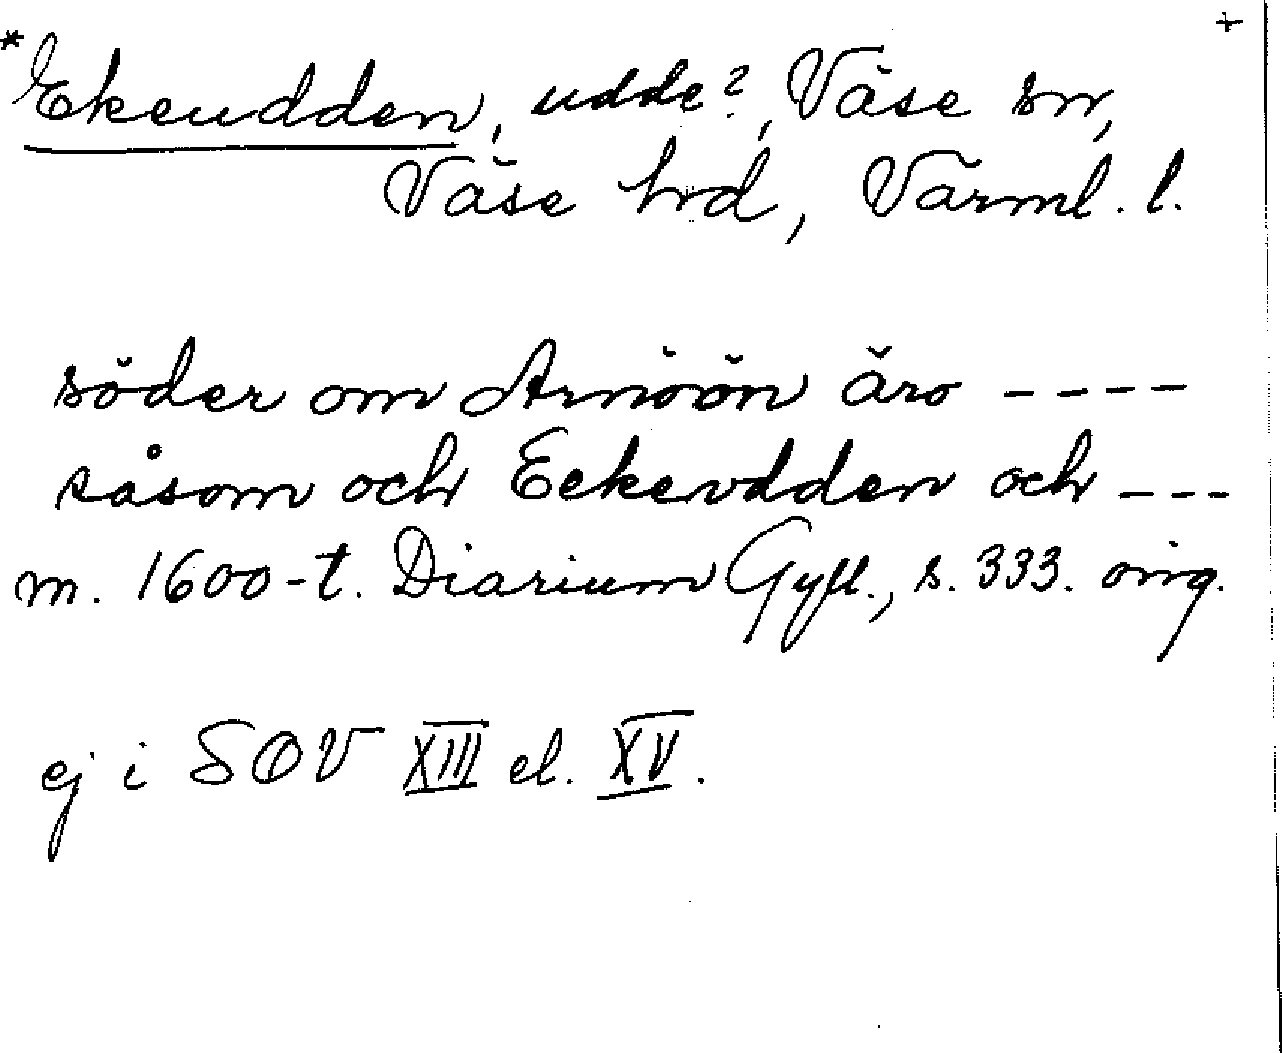 * Ekeudden, udde?, Väse sn, +
Väse hd, Värml. l.
söder om Arnöön äro ----
såsom och Eckevdden och ---
m. 1600-t. Diarium Gyll., s. 333. orig.
ej i SOV XIII el. XV.